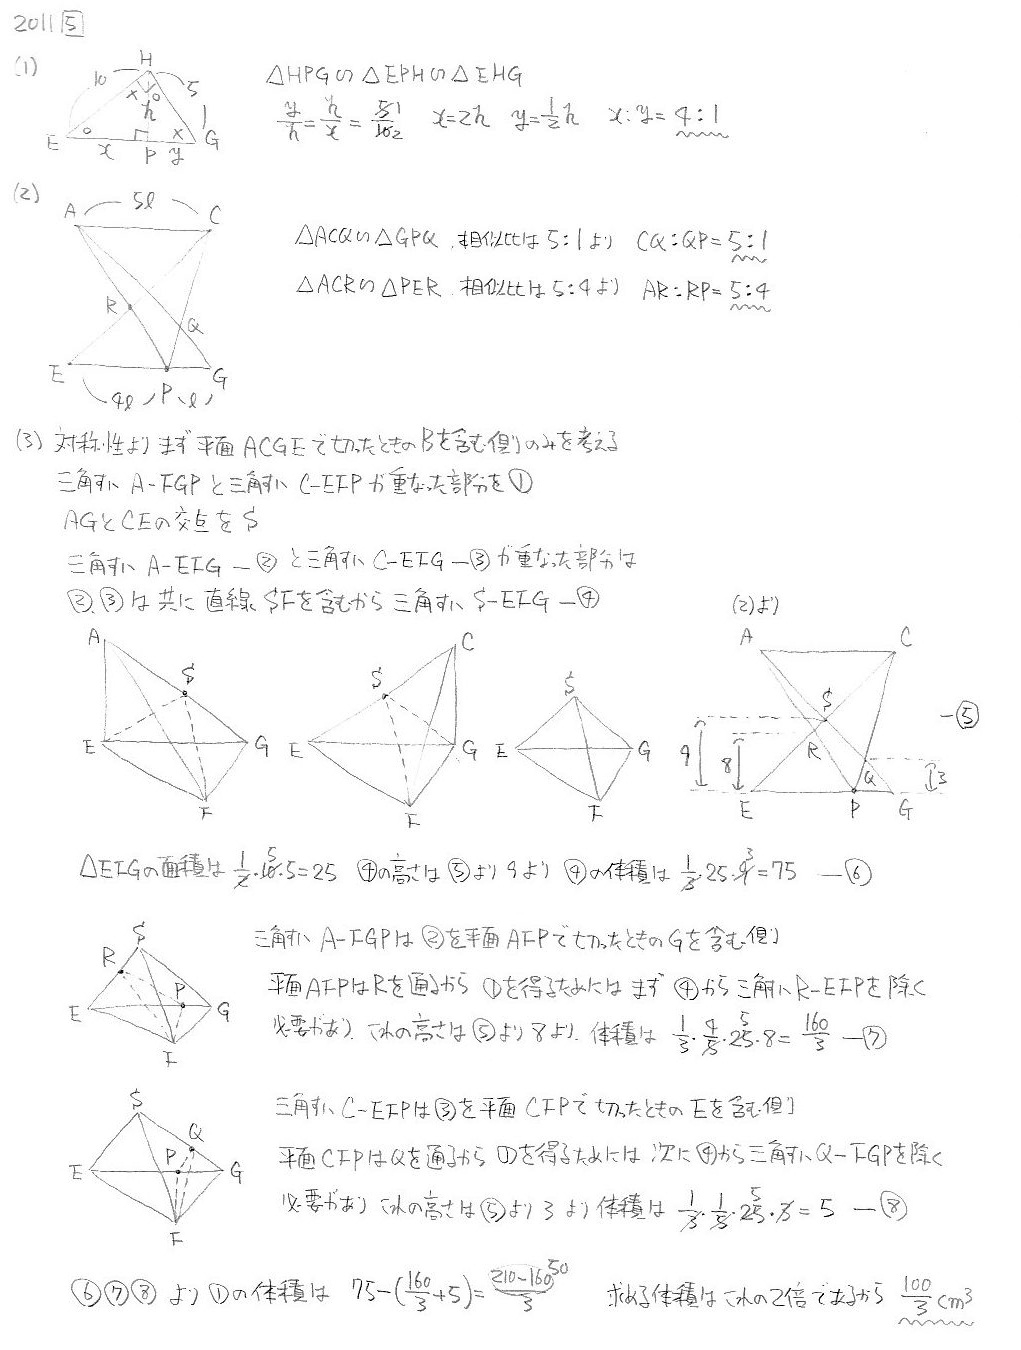 2011 5
(1)
H
10
5
x
○
h
1
E
○
x
P
x
y
G
△HPG∽△EPH∽△EHG
y/h = h/x = 5/10 1/2 x=2h y=1/2h x:y= 4:1
(2)
A
5ℓ
C
R
Q
E
4ℓ
P
ℓ
G
△ACQ∽△GPQ 相似比は5:1より CQ:QP=5:1
△ACR∽△PER 相似比は5:4より AR:RP=5:4
(3) 対称性より まず平面ACGEで切ったときのBを含む側のみを考える
三角すい A-FGPと三角すい C-EFPが重なった部分を①
AGとCEの交点をS
三角すい A-EFG ―② と三角すい C-EFG ―③が重なった部分は
②,③は共に 直線SFを含むから 三角すい S-EFG ―④
(2)より
A
S
E
G
F
C
S
E
G
F
S
E
G
F
A
C
S
R
9
8
Q
3
E
P
G
―⑤
△EFGの面積は 1/2・10・5=25 ④の高さは⑤より9より ④の体積は 1/3・25・9=75 ―⑥
S
R
P
E
G
F
三角すい A-FGPは②を平面AFPで切ったときのGを含む側
平面AFPはRを通るから ①を得るためには まず ④から三角すいR-EFPを除く
必要があり これの高さは⑤より8より 体積は 1/3・4/5・25・8=160/3 ―⑦
S
Q
P
E
G
F
三角すい C-EFPは③を平面CFPで切ったときのEを含む側
平面CFPはQを通るから ①を得るためには 次に④から三角すいQ-FGPを除く
必要があり これの高さは⑤より3より 体積は 1/3・1/5・25・3=5 ―⑧
⑥⑦⑧より①の体積は 75-(160/3+5)=(210-160)/3 50 求める体積はこれの2倍であるから 100/3 cm³